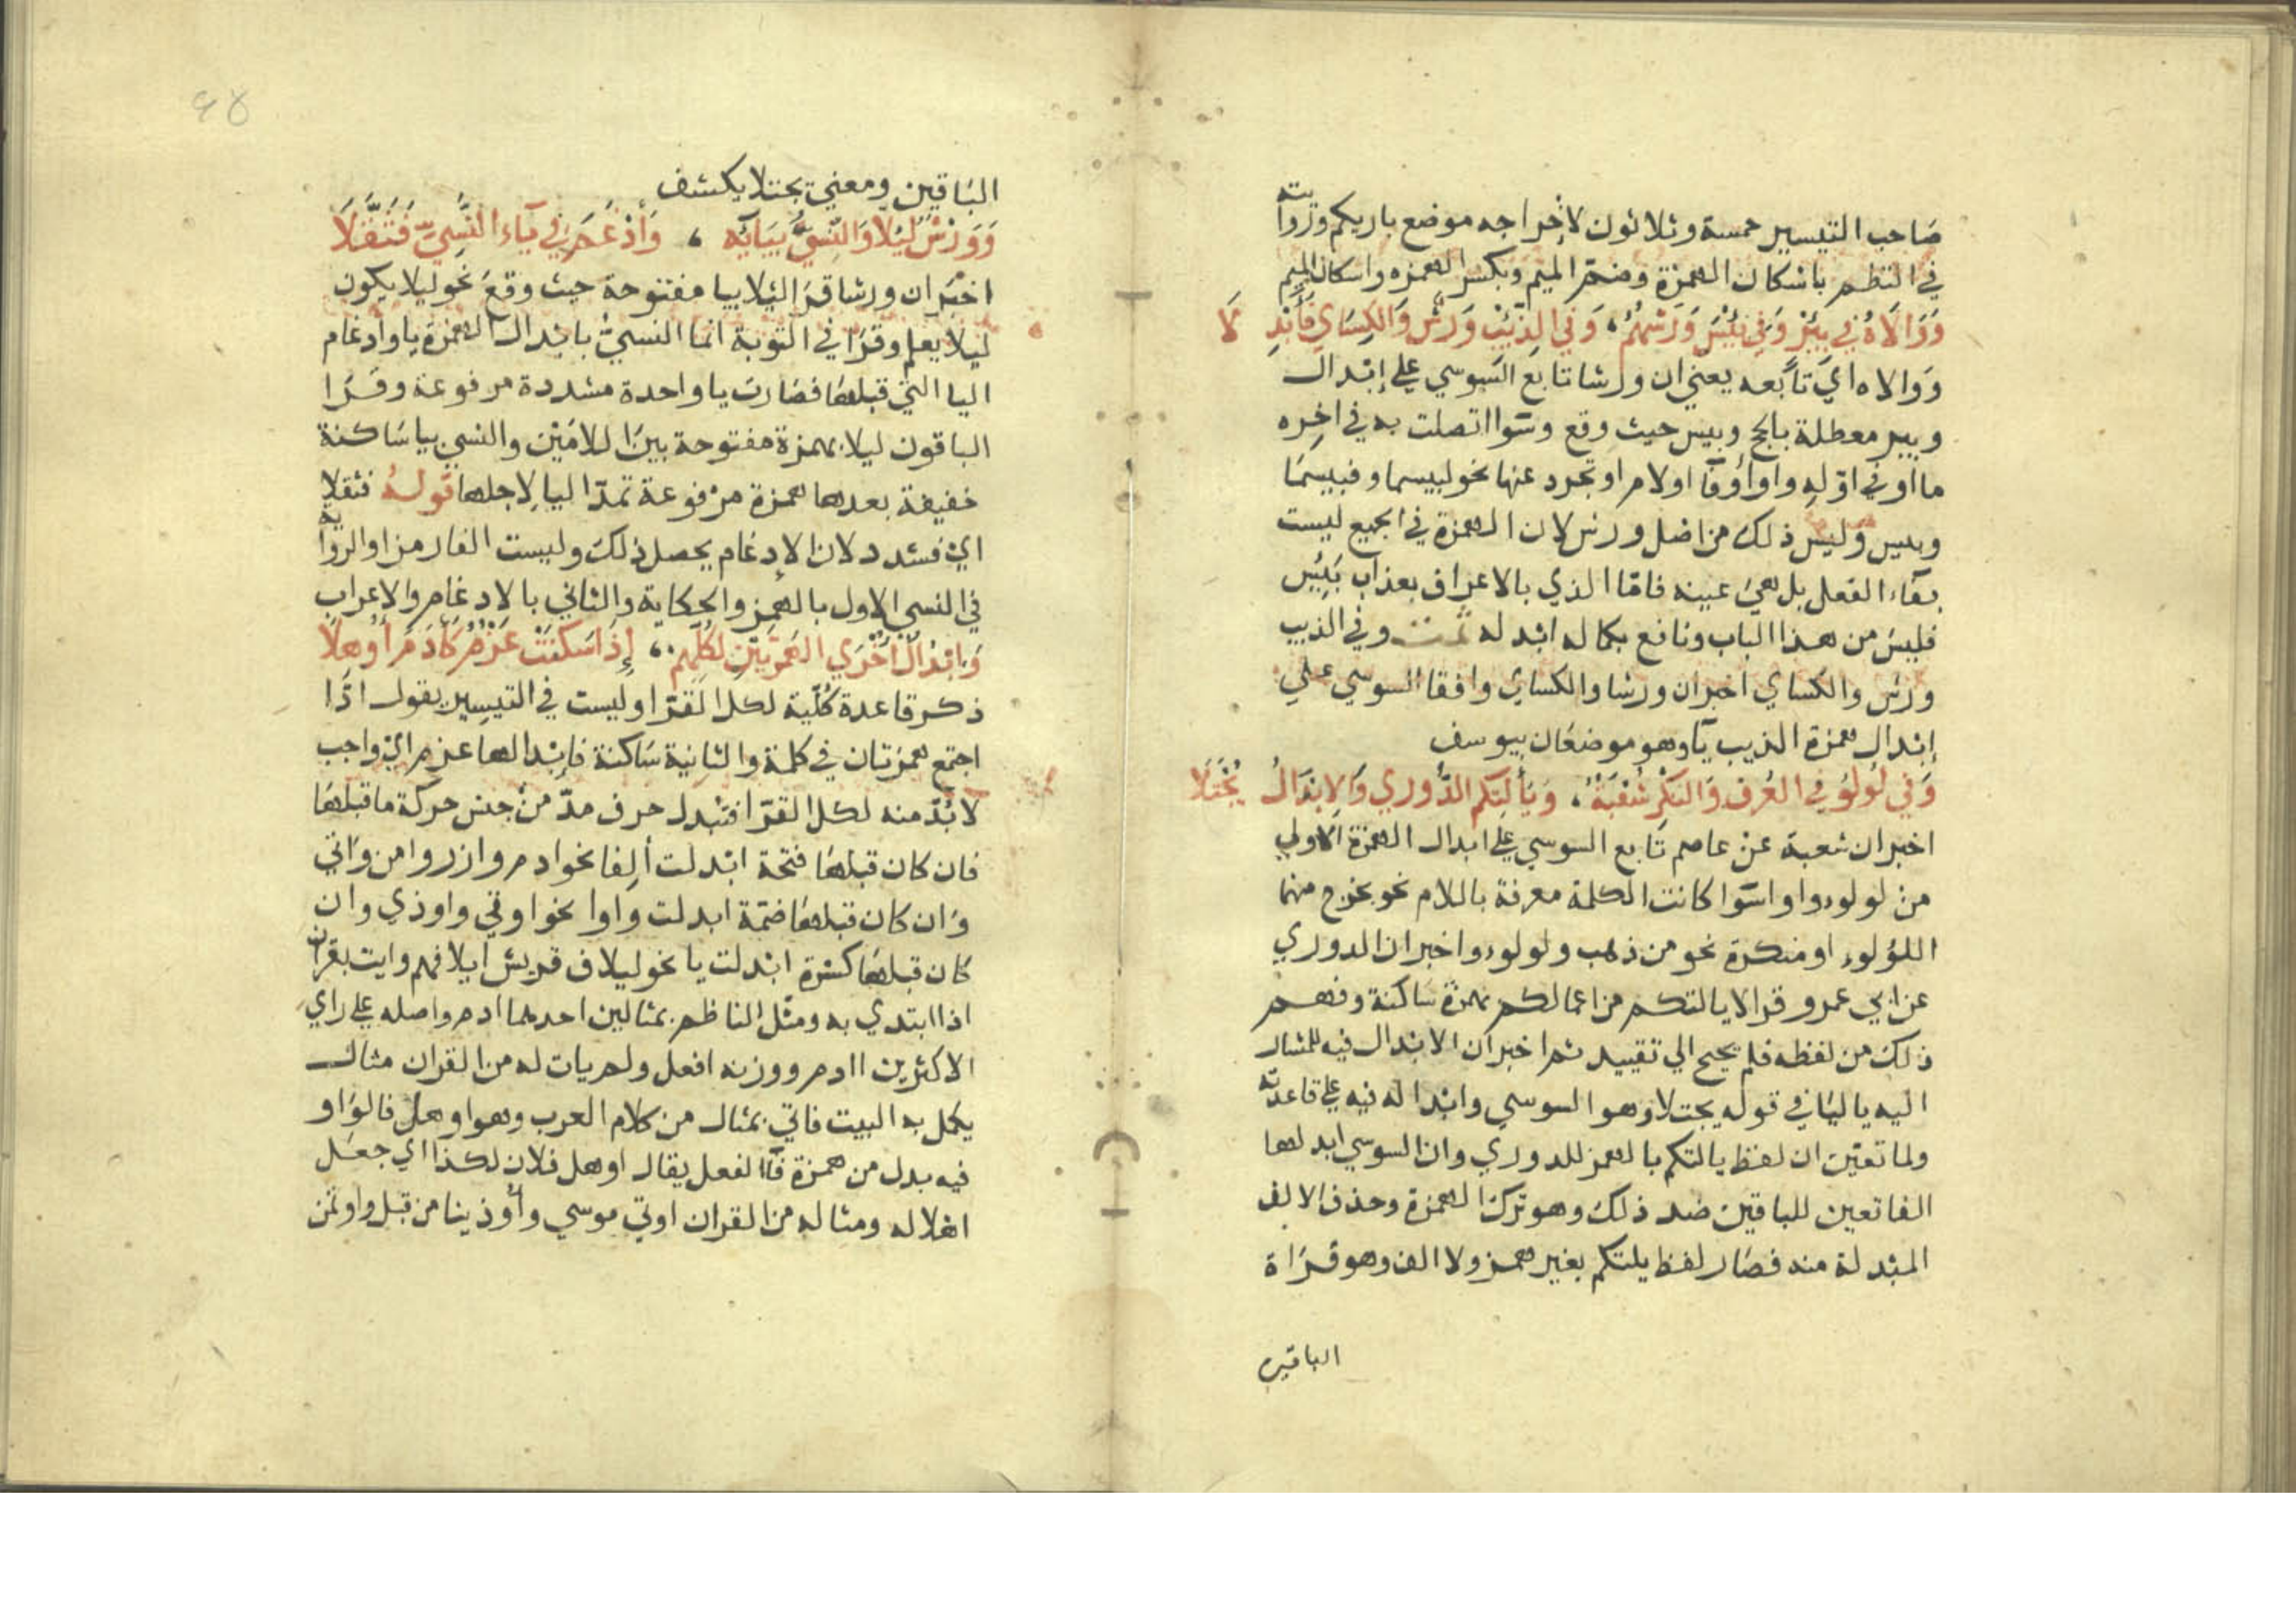 صَاحب التيسير خمسة وثلاثون لاخراجه موضع باريكم وروايته
في النظم باسكان الهمزة وضم الميم وبكسر الهمزه واسكان الميم
وَوَالَاهُ في بِئْرٍ وَفي بِئْسَ وَرْشُهُمْ، وَفي الذِّئْبِ وَرْشٌ وَالكِسَاي فَأَبْدِ لَا
وَوالاه اي تابعه يعني ان ورشا تابع السوسي علي إبْدال
وبير معطلة بالحج وبيس حيث وقع وسَوا اتصلت به في اخِره
ما او في اوّله واو او فآ او لام او تجرد عنها نحو لبيسما وفبيسمَا
وبيس وليس ذلك من اصل ورش لان الهمزة في الجميع ليست
بفاء الفعل بل هي عينه فامّا الذي بالاعراف بعذاب بَئِيْس
فليس من هذا الباب ونافع بكماله ابدله وفي الذيب
ورش والكساي اخبر ان ورشا والكساي وافقا السوسي علي
إبْدال همزة الذيب يآ وهو موضعَان بيوسف
وَفي لُؤْلُؤٍ في العُرفِ وَالنكْرِ شُعْبَةٌ، وَيَأْلِتْكُم الدُّوري وَالابْدَالُ يُجْتَلَا
اخبر ان شعبة عن عاصم تابع السوسي علي ابدال الهمزة الاولي
من لولوء واوا سَوا كانت الكلمة معرفة باللام نحو يخرج منهما
اللؤلوء او منكرة نحو من ذهب ولولوء واخبر ان الدوري
عن ابي عمرو قرا لا يالتكم من اعمالكم بهمزة سَاكنة وفهم
ذلك من لفظه فلم يحتج الي تقييد ثم اخبر ان الابدال فيه للمشار
اليه باليَا في قوله يجتلا وهو السوسي وابْداله فيه علي قاعدته
ولما تعيّن ان لفظ يالتكم بالهمز للدوري وان السوسي ابدلها
الفا تعين للباقين ضد ذلك وهو ترك الهمزة وحذف الالف
المبْدلة منه فصَار لفظ يلتكم بغير همز ولا الف وهو قرَاة
الباقين
الباقين ومعني يجتلا يكشف
وَوَرْشٌ لِيَلَّا وَالنَّسِيُّ بِيَائِه، وَأَدْغَمَ في يَاءِ النَّسِيِّ فَثَقَّلَا
اخبَر ان ورشا قرَا ليلا بيا مفتوحة حيث وقعَ نحو ليلا يكون
ليلا يعلم وقرَا في التوبة انما النسيّ بابْدال الهمزة يا وادغام
اليا التي قبلها فصَارت يا واحدة مشددة مرفوعة وقرَا
الباقون ليلا بهمزة مفتوحة بين اللامَيْن والنسي بيا سَاكنة
خفيفة بعدها همزة مرْفوعة تمدّ اليا لاجلها قولهُ فثقلا
اي فشدد لان الادغام يحصل ذلك وليست الفا رمزا والروايه
في النسي الاول بالهمز والحكاية والثاني بالادغام والاعراب
وَابْدَالُ أُخْرَي الهَمْزَتَيْنِ لكُلِّهِمْ، إِذَا سَكَنَتْ عَزْمٌ كَآدَمَ أُوْهِلَا
ذكر قاعدة كُلّية لكل القرّا وليست في التيسير يقول اذَا
اجتمع همزتان في كلمة والثانية سَاكنة فابْدالها عزم اي واجب
لا بُدّ منه لكل القرّا فتبدل حرف مدّ منْ جنس حركة ما قبلهَا
فان كان قبلهَا فتحة ابْدلت ألِفا نحو ادم وازر وامن وَاتي
وَان كان قبلهَا ضمّة ابدلت واوا نحو اوتي واوذي وان
كان قبلهَا كسْرة ابْدلت يا نحو ليلاف قريش ايلافهم وايت بقران
اذا ابتدي به ومثّل الناظم بمثالين احدهما ادم واصله علي راي
الاكثرين اادم ووزنه افعل ولم يات له من القران مثال
يكمل به البيت فاتي بمثال من كلام العرب وهو اوهل فالوَاو
فيه بدل من همزة فآ الفعل يقال اوهل فلان لكذا اي جعَل
اهلا له ومثاله من القران اوتي موسي وأوذينا من قبل واوتمن